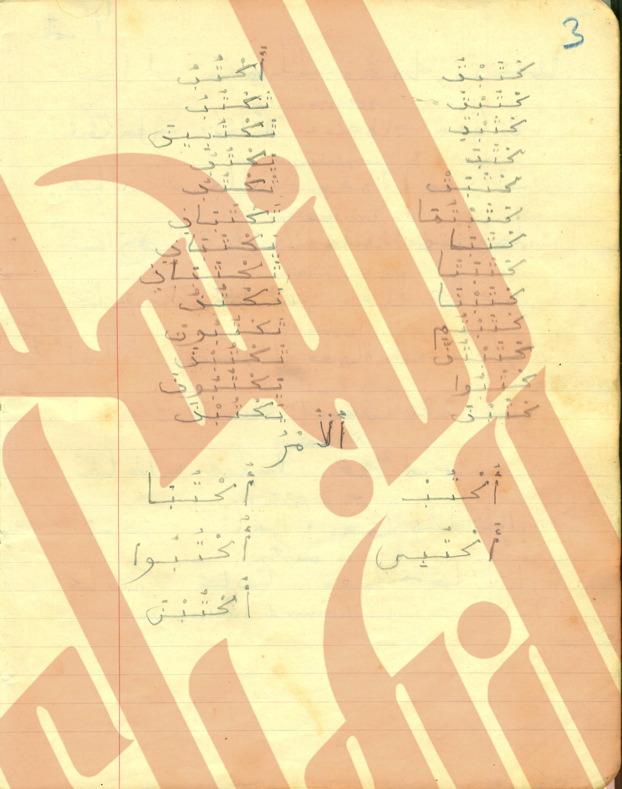 3
كَتَبْتُ
كَتَبْتَ
كَتَبْتِ
كَتَبَ
كَتَبَتْ
كَتَبْتُمَا
كَتَبَا
كَتَبَتَا
كَتَبْنَا
كَتَبْتُمْ
كَتَبْتُنَّ
كَتَبُوا
كَتَبْنَ
أَكْتُبُ
تَكْتُبُ
تَكْتُبِينَ
يَكْتُبُ
تَكْتُبُ
تَكْتُبَانِ
يَكْتُبَانِ
تَكْتُبَانِ
نَكْتُبُ
تَكْتُبُونَ
تَكْتُبْنَ
يَكْتُبُونَ
يَكْتُبْنَ
الأَمْرُ
أُكْتُبْ
أُكْتُبِي
أُكْتُبَا
أُكْتُبُوا
أُكْتُبْنَ